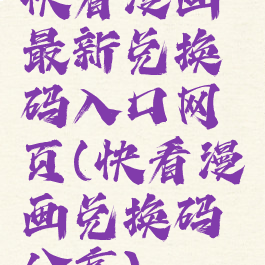 快看漫画
最新兑换
码入口网
页(快看漫
画兑换码
分享)